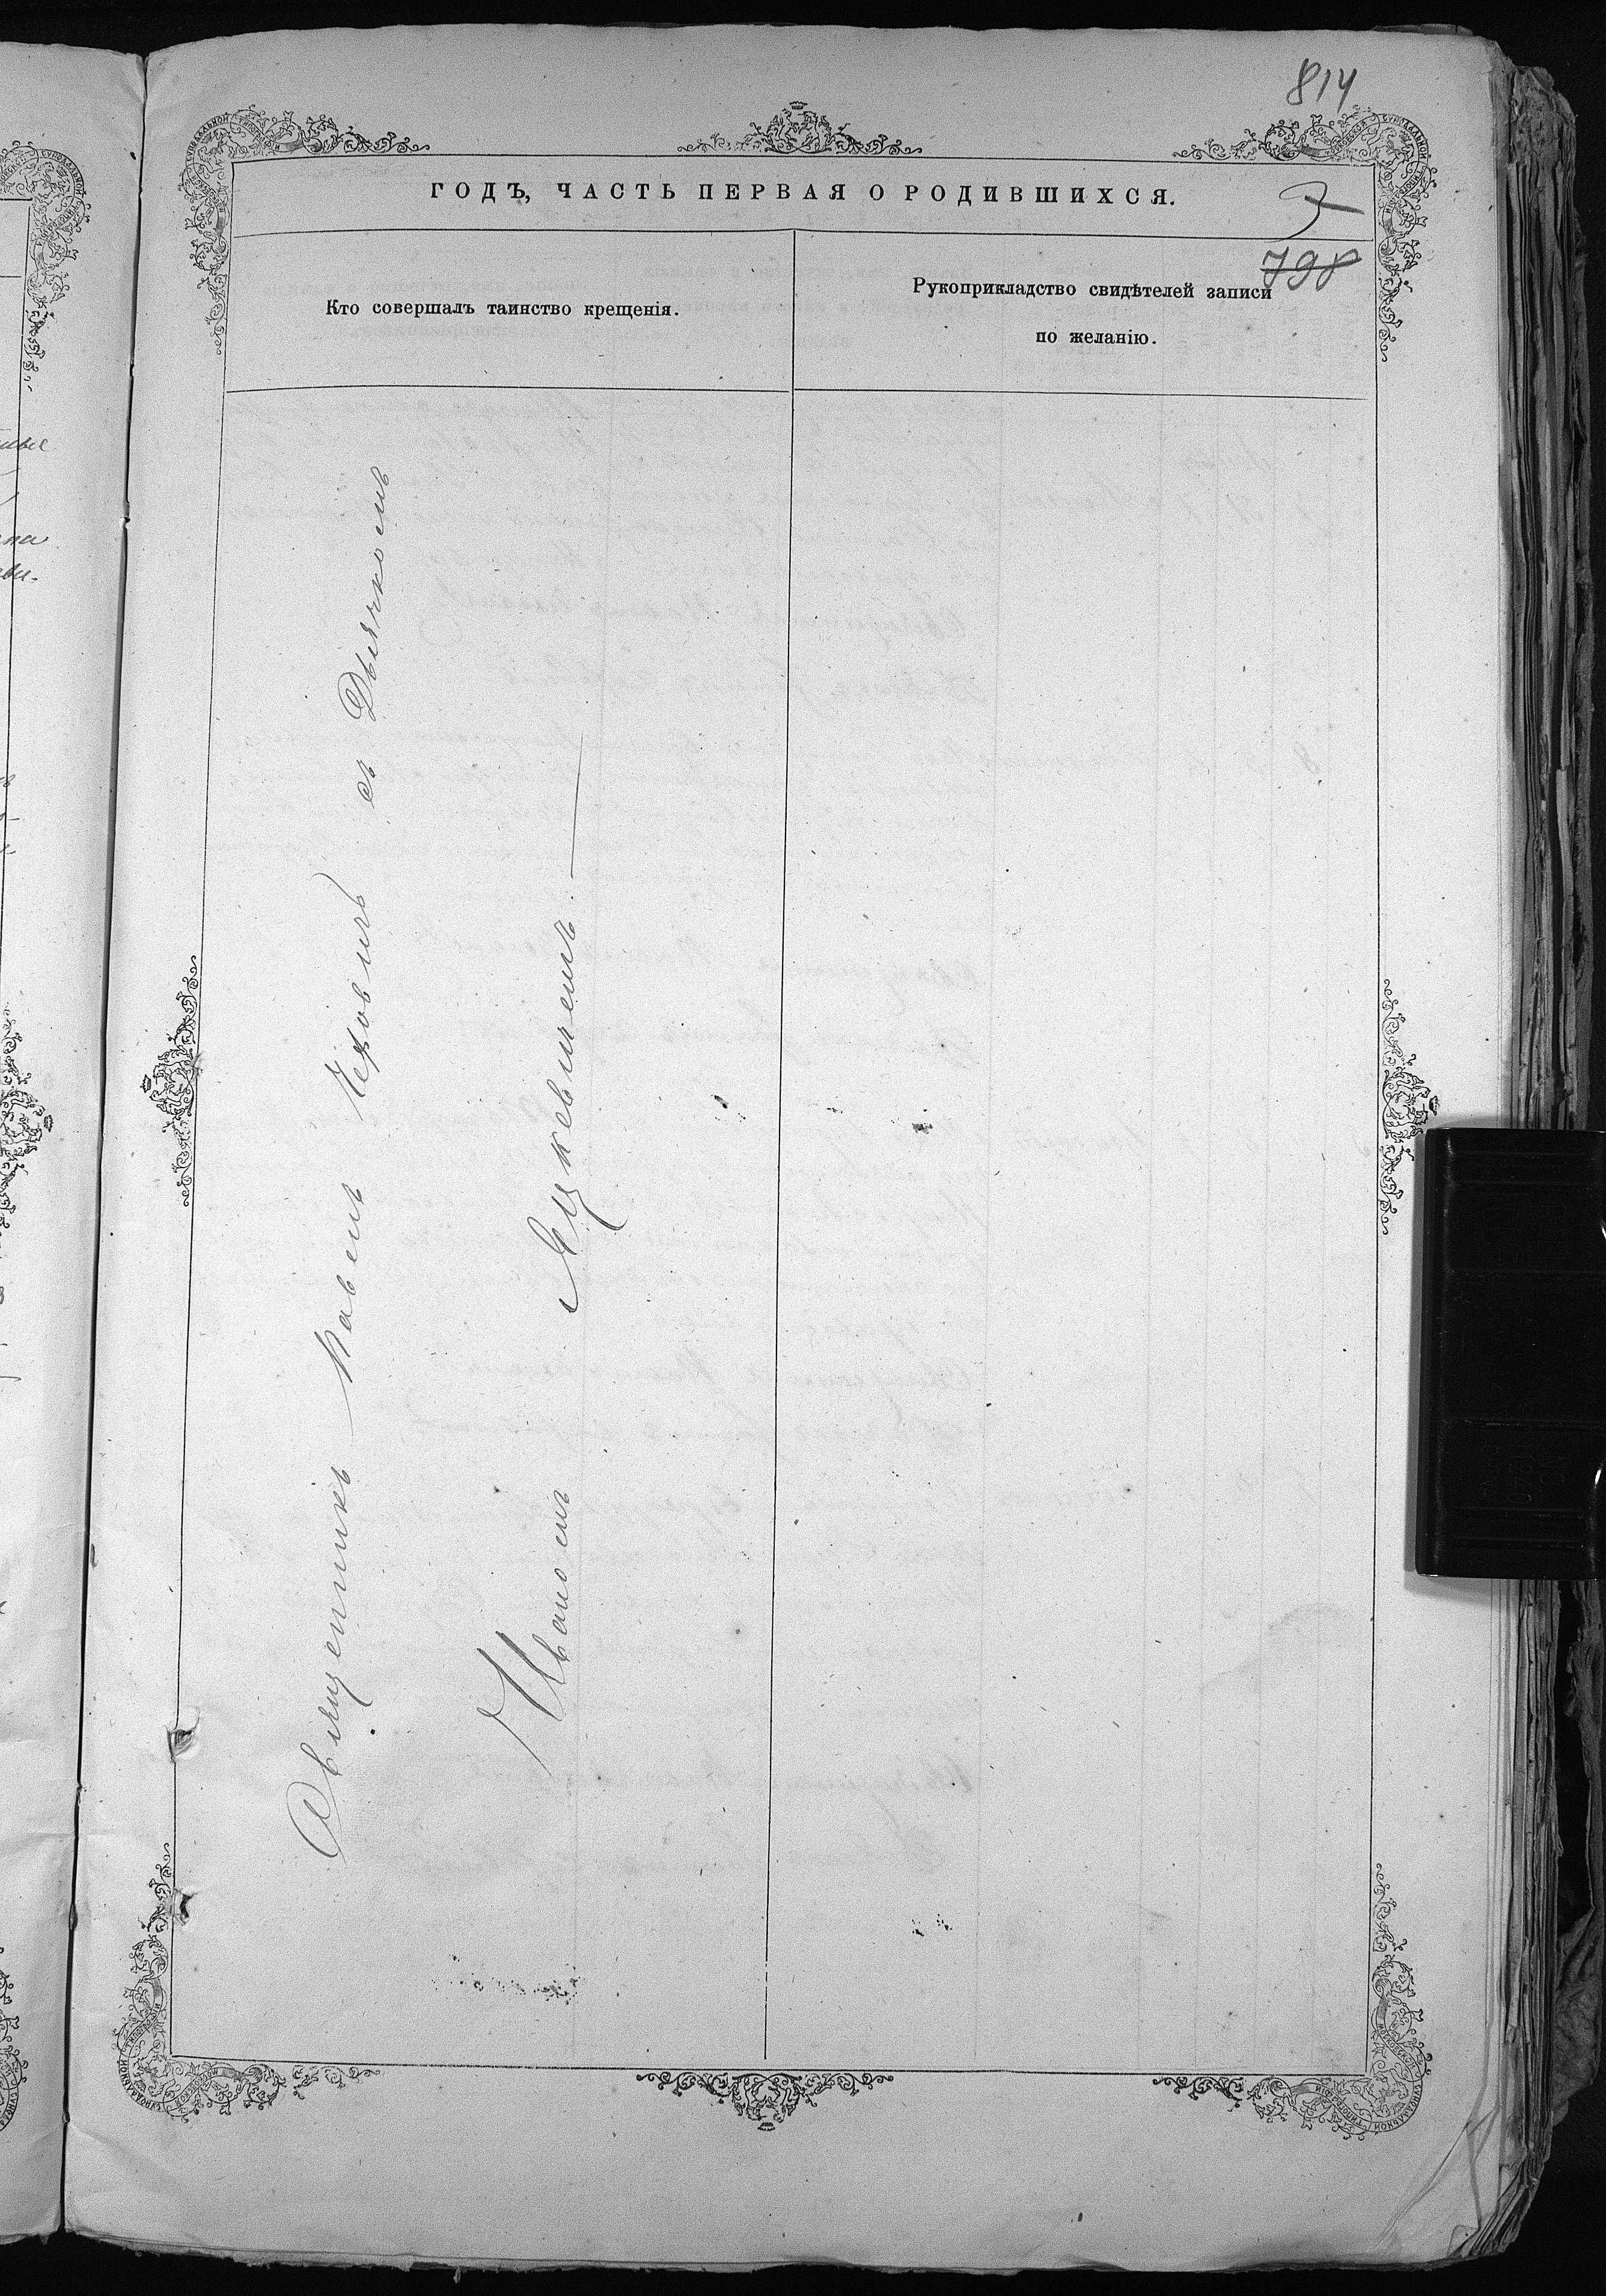 814
ГОДЪ, ЧАСТЬ ПЕРВАЯ О РОДИВШИХСЯ.
3
798
Кто совершалъ таинство крещенія.
Рукоприкладство свидѣтелей записи
по желанію.
Священникъ Павелъ Чеховичъ съ Дьячкомъ
Иваномъ Яцкевичемъ